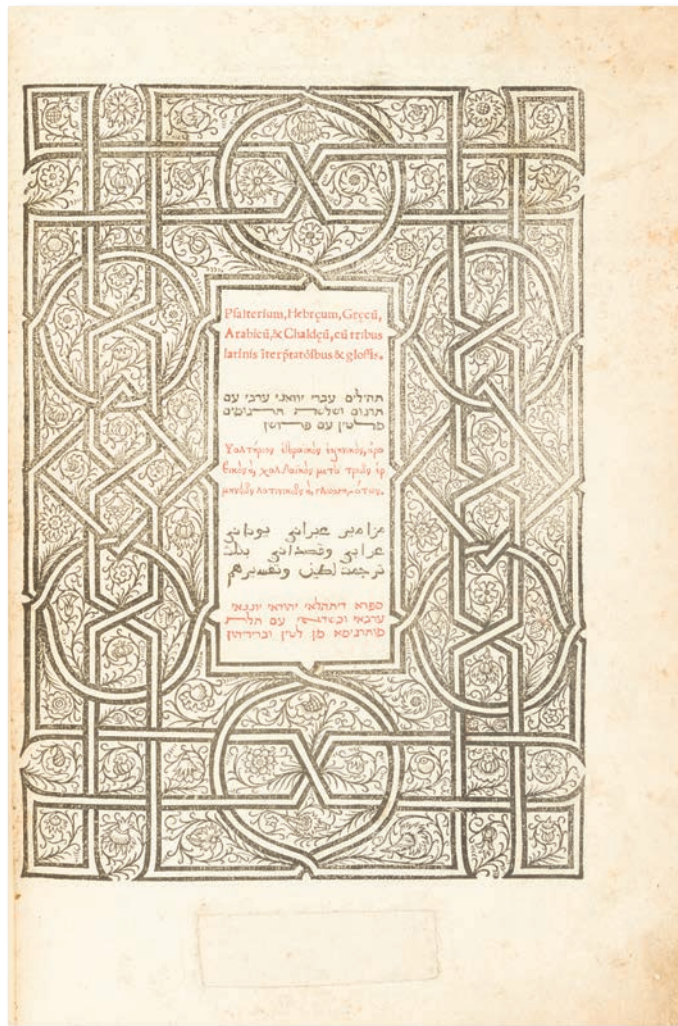 Pſalterium, Hebręum, Gręcū,
Arabicū, & Chaldęū, cū tribus
latinis ĩterp̃tatõibus & gloſſis.
תהילים עברי יוואני ערבי עם
תרגום ושלשת תרגומים
מלטין עם פרושן
Ψαλτήριον ἑβραϊκὸν ἑλληνικὸν, ἀρα
βικὸν ὴ, χαλδαϊκὸν μετὰ τριῶν ἑρ
μηνειῶν λατινικῶν ὴ, γλωσσημάτων.
مزامير عبراني يوناني
عرابي وقصداني بثلث
ترجمت لطين وتفسيرهم
ספרא דיתהלאי יהודאי יונגאי
ערבאי וכשדאי עם תלת
מותרגמא מן לטין ובריריהון